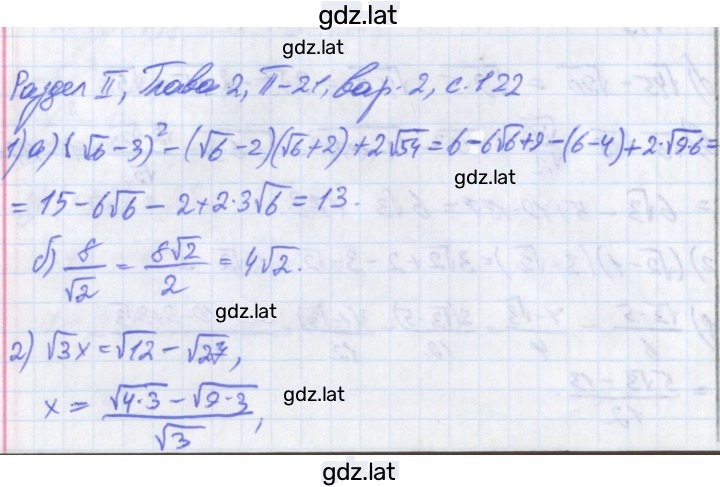 gdz.lat
Раздел II, Глава 2, П-21, вар. 2, с. 122
1) а) (√6 - 3)² - (√6 - 2)(√6 + 2) + 2√54 = 6 - 6√6 + 9 - (6 - 4) + 2·√9·6 =
= 15 - 6√6 - 2 + 2·3√6 = 13.
gdz.lat
б) 8/√2 = 8√2/2 = 4√2.
gdz.lat
2) √3x = √12 - √27,
x = (√4·3 - √9·3)/√3,
gdz.lat
gdz.lat